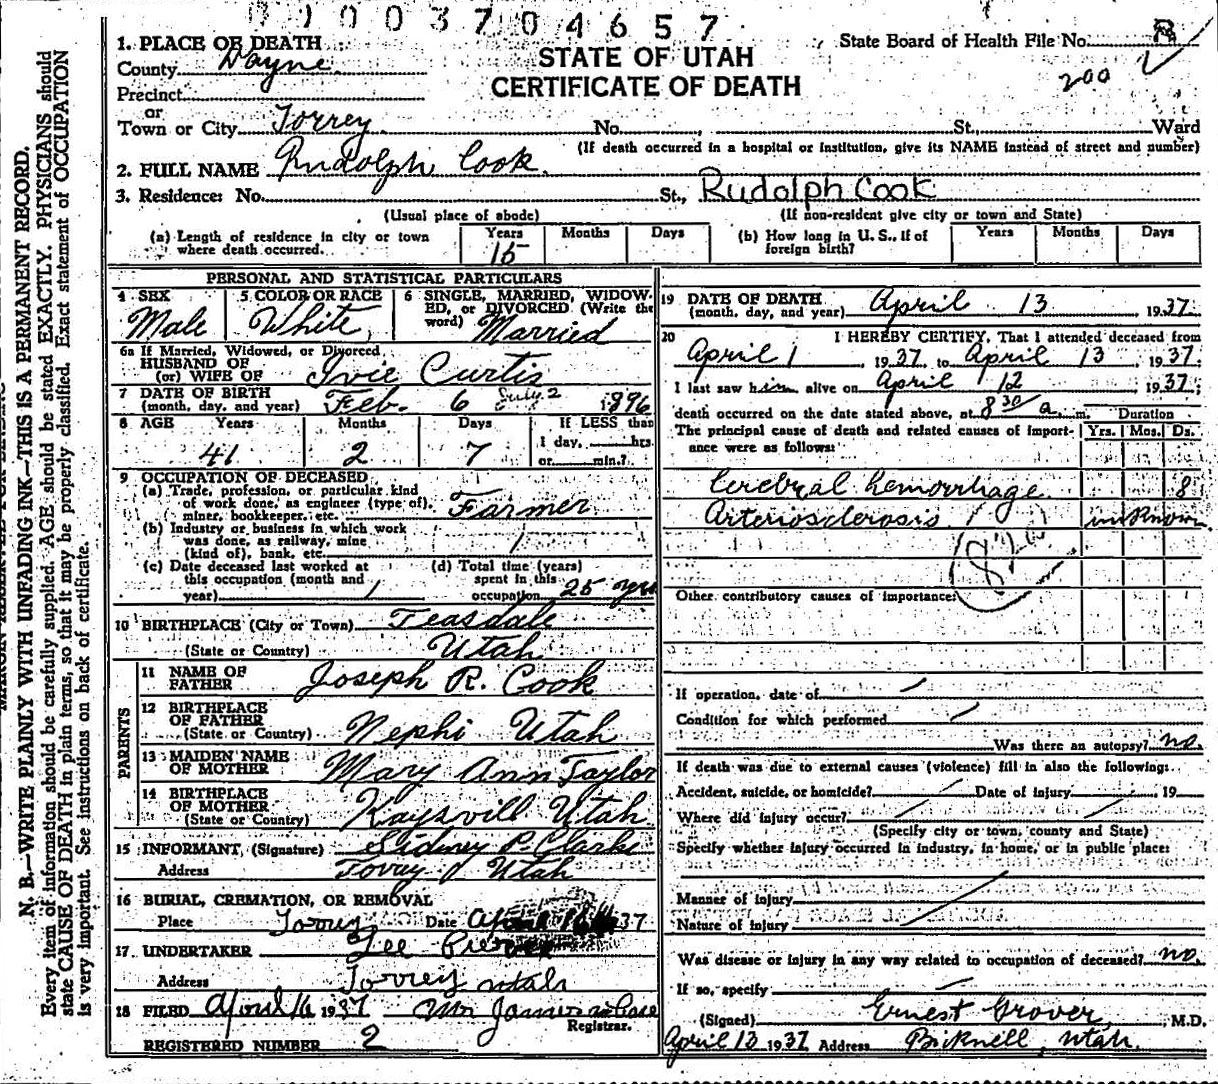 01003704657
1. PLACE OF DEATH
County Wayne
Precinct
or
Town or City Torrey No. , St., Ward
(If death occurred in a hospital or institution, give its NAME instead of street and number)
STATE OF UTAH
CERTIFICATE OF DEATH
State Board of Health File No. B
200
2. FULL NAME Rudolph Cook.
3. Residence: No. St., Rudolph Cook
(Usual place of abode) (If non-resident give city or town and State)
(a) Length of residence in city or town where death occurred. Years 15 Months Days
(b) How long in U. S., if of foreign birth? Years Months Days
PERSONAL AND STATISTICAL PARTICULARS
4 SEX Male
5 COLOR OR RACE White
6 SINGLE, MARRIED, WIDOWED, or DIVORCED (Write the word) Married
6a If Married, Widowed, or Divorced
HUSBAND OF
(or) WIFE OF Ivie Curtis
7 DATE OF BIRTH
(month, day, and year) Feb. 6 July 2 1896
8 AGE Years 41 Months 2 Days 7 If LESS than
1 day, hrs.
or min.?
9 OCCUPATION OF DECEASED
(a) Trade, profession, or particular kind
of work done, as engineer (type of),
miner, bookkeeper, etc. Farmer
(b) Industry or business in which work
was done, as railway, mine
(kind of), bank, etc.
(c) Date deceased last worked at
this occupation (month and
year)
(d) Total time (years)
spent in this
occupation 25 yrs
10 BIRTHPLACE (City or Town) Teasdale
(State or Country) Utah
PARENTS
11 NAME OF
FATHER Joseph R. Cook
12 BIRTHPLACE
OF FATHER
(State or Country) Nephi Utah
13 MAIDEN NAME
OF MOTHER Mary Ann Taylor
14 BIRTHPLACE
OF MOTHER
(State or Country) Kaysvill Utah
15 INFORMANT, (Signature) Sidney P. Clarke
Address Torrey Utah
16 BURIAL, CREMATION, OR REMOVAL
Place Torrey Date April 16 37
17 UNDERTAKER Lee Pierce
Address Torrey Utah
18 FILED April 16 1937
Registrar.
REGISTERED NUMBER 2
19 DATE OF DEATH
(month, day, and year) April 13 1937
20 I HEREBY CERTIFY, That I attended deceased from
April 1 1937, to April 13, 1937.
I last saw him alive on April 12 1937;
death occurred on the date stated above, at 8 30 a. m. Duration
The principal cause of death and related causes of importance were as follows: Yrs. Mos. Ds.
Cerebral hemorrhage 8
Arteriosclerosis unknown
Other contributory causes of importance:
If operation, date of
Condition for which performed
Was there an autopsy? no.
If death was due to external causes (violence) fill in also the following:
Accident, suicide, or homicide? Date of injury 19
Where did injury occur?
(Specify city or town, county and State)
Specify whether injury occurred in industry, in home, or in public place:
Manner of injury
Nature of injury
Was disease or injury in any way related to occupation of deceased? no.
If so, specify
(Signed) Ernest Grover, M.D.
April 13 1937 Address Bicknell, Utah.
N. B.—WRITE PLAINLY WITH UNFADING INK—THIS IS A PERMANENT RECORD.
Every item of information should be carefully supplied. AGE should be stated EXACTLY. PHYSICIANS should
state CAUSE OF DEATH in plain terms, so that it may be properly classified. Exact statement of OCCUPATION
is very important. See instructions on back of certificate.